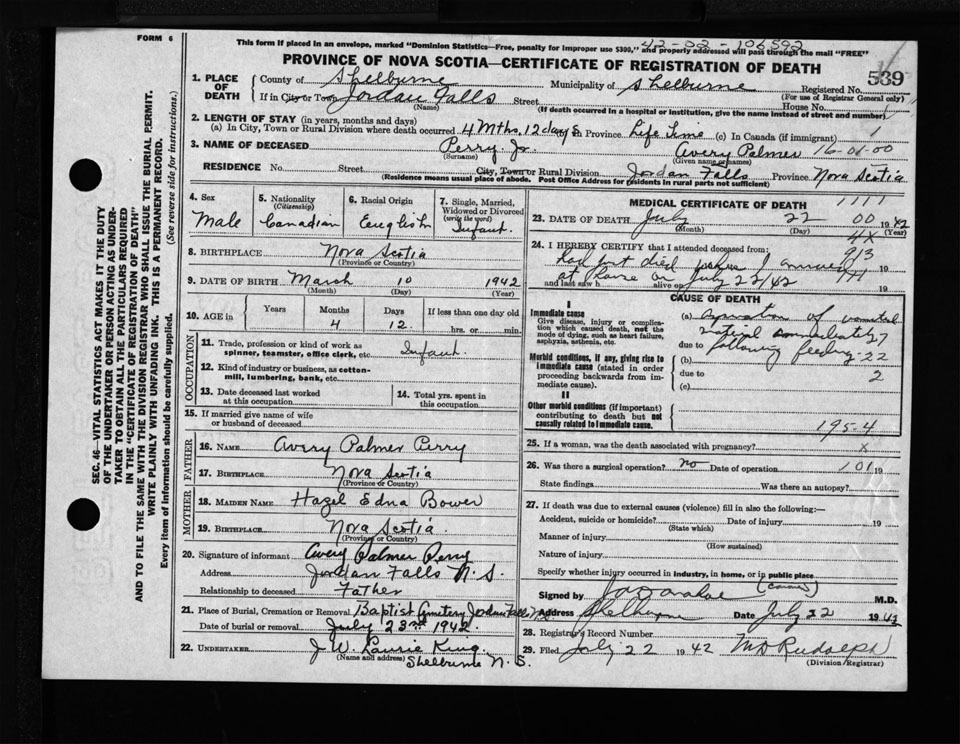 FORM 6
This form if placed in an envelope, marked "Dominion Statistics—Free, penalty for improper use $300," and properly addressed will pass through the mail "FREE"
42-02-106592
PROVINCE OF NOVA SCOTIA—CERTIFICATE OF REGISTRATION OF DEATH
539
1. PLACE OF DEATH
County of Shelburne Municipality of Shelburne Registered No.
(For use of Registrar General only)
If in City or Town Jordan Falls Street House No.
(Name) (If death occurred in a hospital or institution, give the name instead of street and number)
2. LENGTH OF STAY (in years, months and days)
(a) In City, Town or Rural Division where death occurred 4 Mths, 12 days Province Life Time (c) In Canada (if immigrant)
3. NAME OF DECEASED Perry Jr. Avery Palmer 16-01-00
(Surname) (Given name or names)
RESIDENCE No. Street City, Town or Rural Division Jordan Falls Province Nova Scotia
(Residence means usual place of abode. Post Office Address for residents in rural parts not sufficient)
4. Sex
Male
5. Nationality
(Citizenship)
Canadian
6. Racial Origin
English
7. Single, Married, Widowed or Divorced
(write the word)
Infant
8. BIRTHPLACE Nova Scotia
(Province or Country)
9. DATE OF BIRTH March 10 1942
(Month) (Day) (Year)
10. AGE in
Years Months Days If less than one day old
4 12 hrs. or min.
OCCUPATION
11. Trade, profession or kind of work as spinner, teamster, office clerk, etc. Infant.
12. Kind of industry or business, as cotton-mill, lumbering, bank, etc.
13. Date deceased last worked at this occupation
14. Total yrs. spent in this occupation
15. If married give name of wife or husband of deceased
FATHER
16. NAME Avery Palmer Perry
17. BIRTHPLACE Nova Scotia
(Province or Country)
MOTHER
18. MAIDEN NAME Hazel Edna Bower
19. BIRTHPLACE Nova Scotia
(Province or Country)
20. Signature of informant Avery Palmer Perry
Address Jordan Falls N. S.
Relationship to deceased Father
21. Place of Burial, Cremation or Removal Baptist Cemetery Jordan Falls N.S.
Date of burial or removal July 23rd 1942.
22. UNDERTAKER J. W. Laurie King
(Name and address) Shelburne N. S.
MEDICAL CERTIFICATE OF DEATH
23. DATE OF DEATH July 22 1942
(Month) (Day) (Year)
24. I HEREBY CERTIFY that I attended deceased from:
had just died when I arrived 19
at House on July 22/42
and last saw h alive on 19
CAUSE OF DEATH
I
Immediate cause
Give disease, injury or complication which caused death, not the mode of dying, such as heart failure, asphyxia, asthenia, etc.
(a) of
immediately
due to following feeding
Morbid conditions, if any, giving rise to immediate cause (stated in order proceeding backwards from immediate cause).
(b)
due to
(c)
II
Other morbid conditions (if important) contributing to death but not causally related to immediate cause.
195-4
25. If a woman, was the death associated with pregnancy? x
26. Was there a surgical operation? No Date of operation 101 19
State findings Was there an autopsy?
27. If death was due to external causes (violence) fill in also the following:—
Accident, suicide or homicide? Date of injury 19
(State which)
Manner of injury
(How sustained)
Nature of injury
Specify whether injury occurred in industry, in home, or in public place
Signed by M.D.
Address Shelburne Date July 22 1942
28. Registrar's Record Number
29. Filed July 22 1942 M D Rudolph
(Division Registrar)
SEC. 46—VITAL STATISTICS ACT MAKES IT THE DUTY OF THE UNDERTAKER OR PERSON ACTING AS UNDERTAKER TO OBTAIN ALL THE PARTICULARS REQUIRED IN THE "CERTIFICATE OF REGISTRATION OF DEATH" AND TO FILE THE SAME WITH THE DIVISION REGISTRAR WHO SHALL ISSUE THE BURIAL PERMIT.
WRITE PLAINLY WITH UNFADING INK. THIS IS A PERMANENT RECORD.
Every item of information should be carefully supplied. (See reverse side for instructions.)